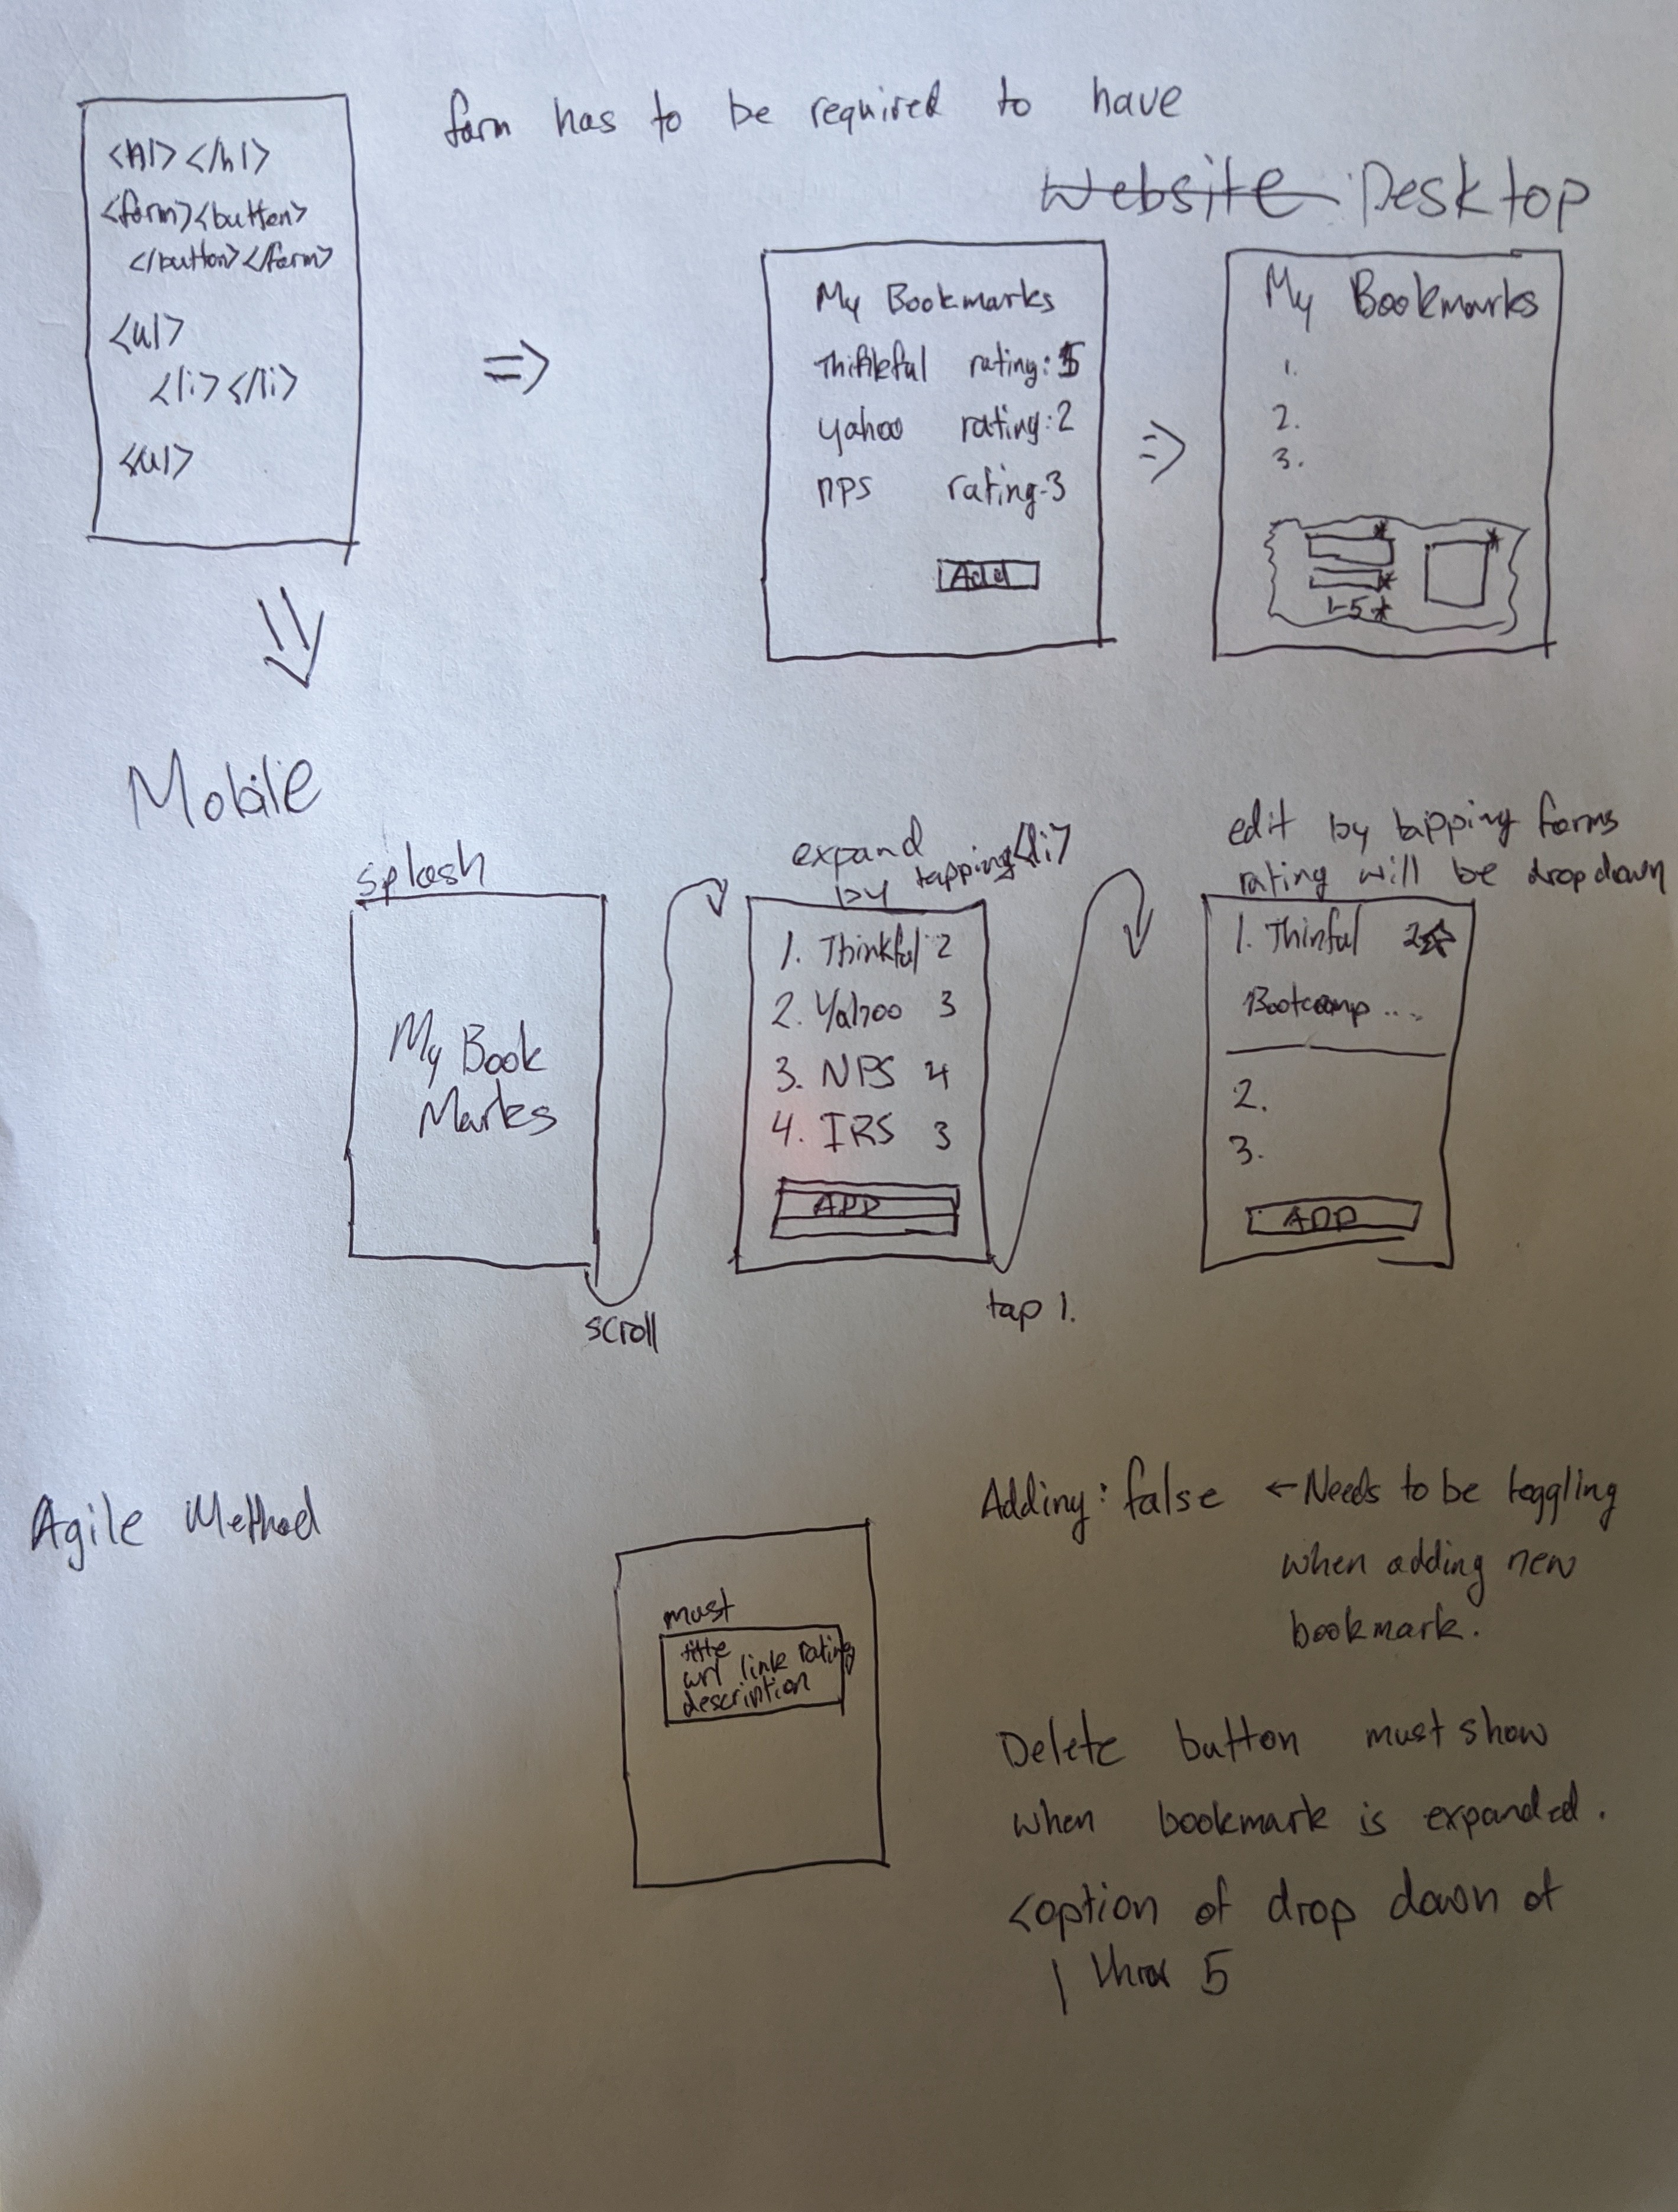 form has to be required to have
<h1></h1>
<form><button>
</button></form>
<ul>
<li></li>
<ul>
=>
Website Desktop
My Bookmarks
rating: 5
yahoo rating:2
nps rating-3
Add
=>
My Bookmarks
1.
2.
3.
*
*
*
1-5*
Mobile
splash
My Book
Marks
scroll
expand
by tapping <li>
1. Thinkful 2
2. Yahoo 3
3. NPS 4
4. IRS 3
ADD
tap 1.
edit by tapping forms
rating will be dropdown
1. Thinful 2☆
Bootcamp ....
2.
3.
ADD
Agile Method
must
title
url link rating
description
Adding: false ← Needs to be toggling
when adding new
bookmark.
Delete button must show
when bookmark is expanded.
<option of drop down of
1 5